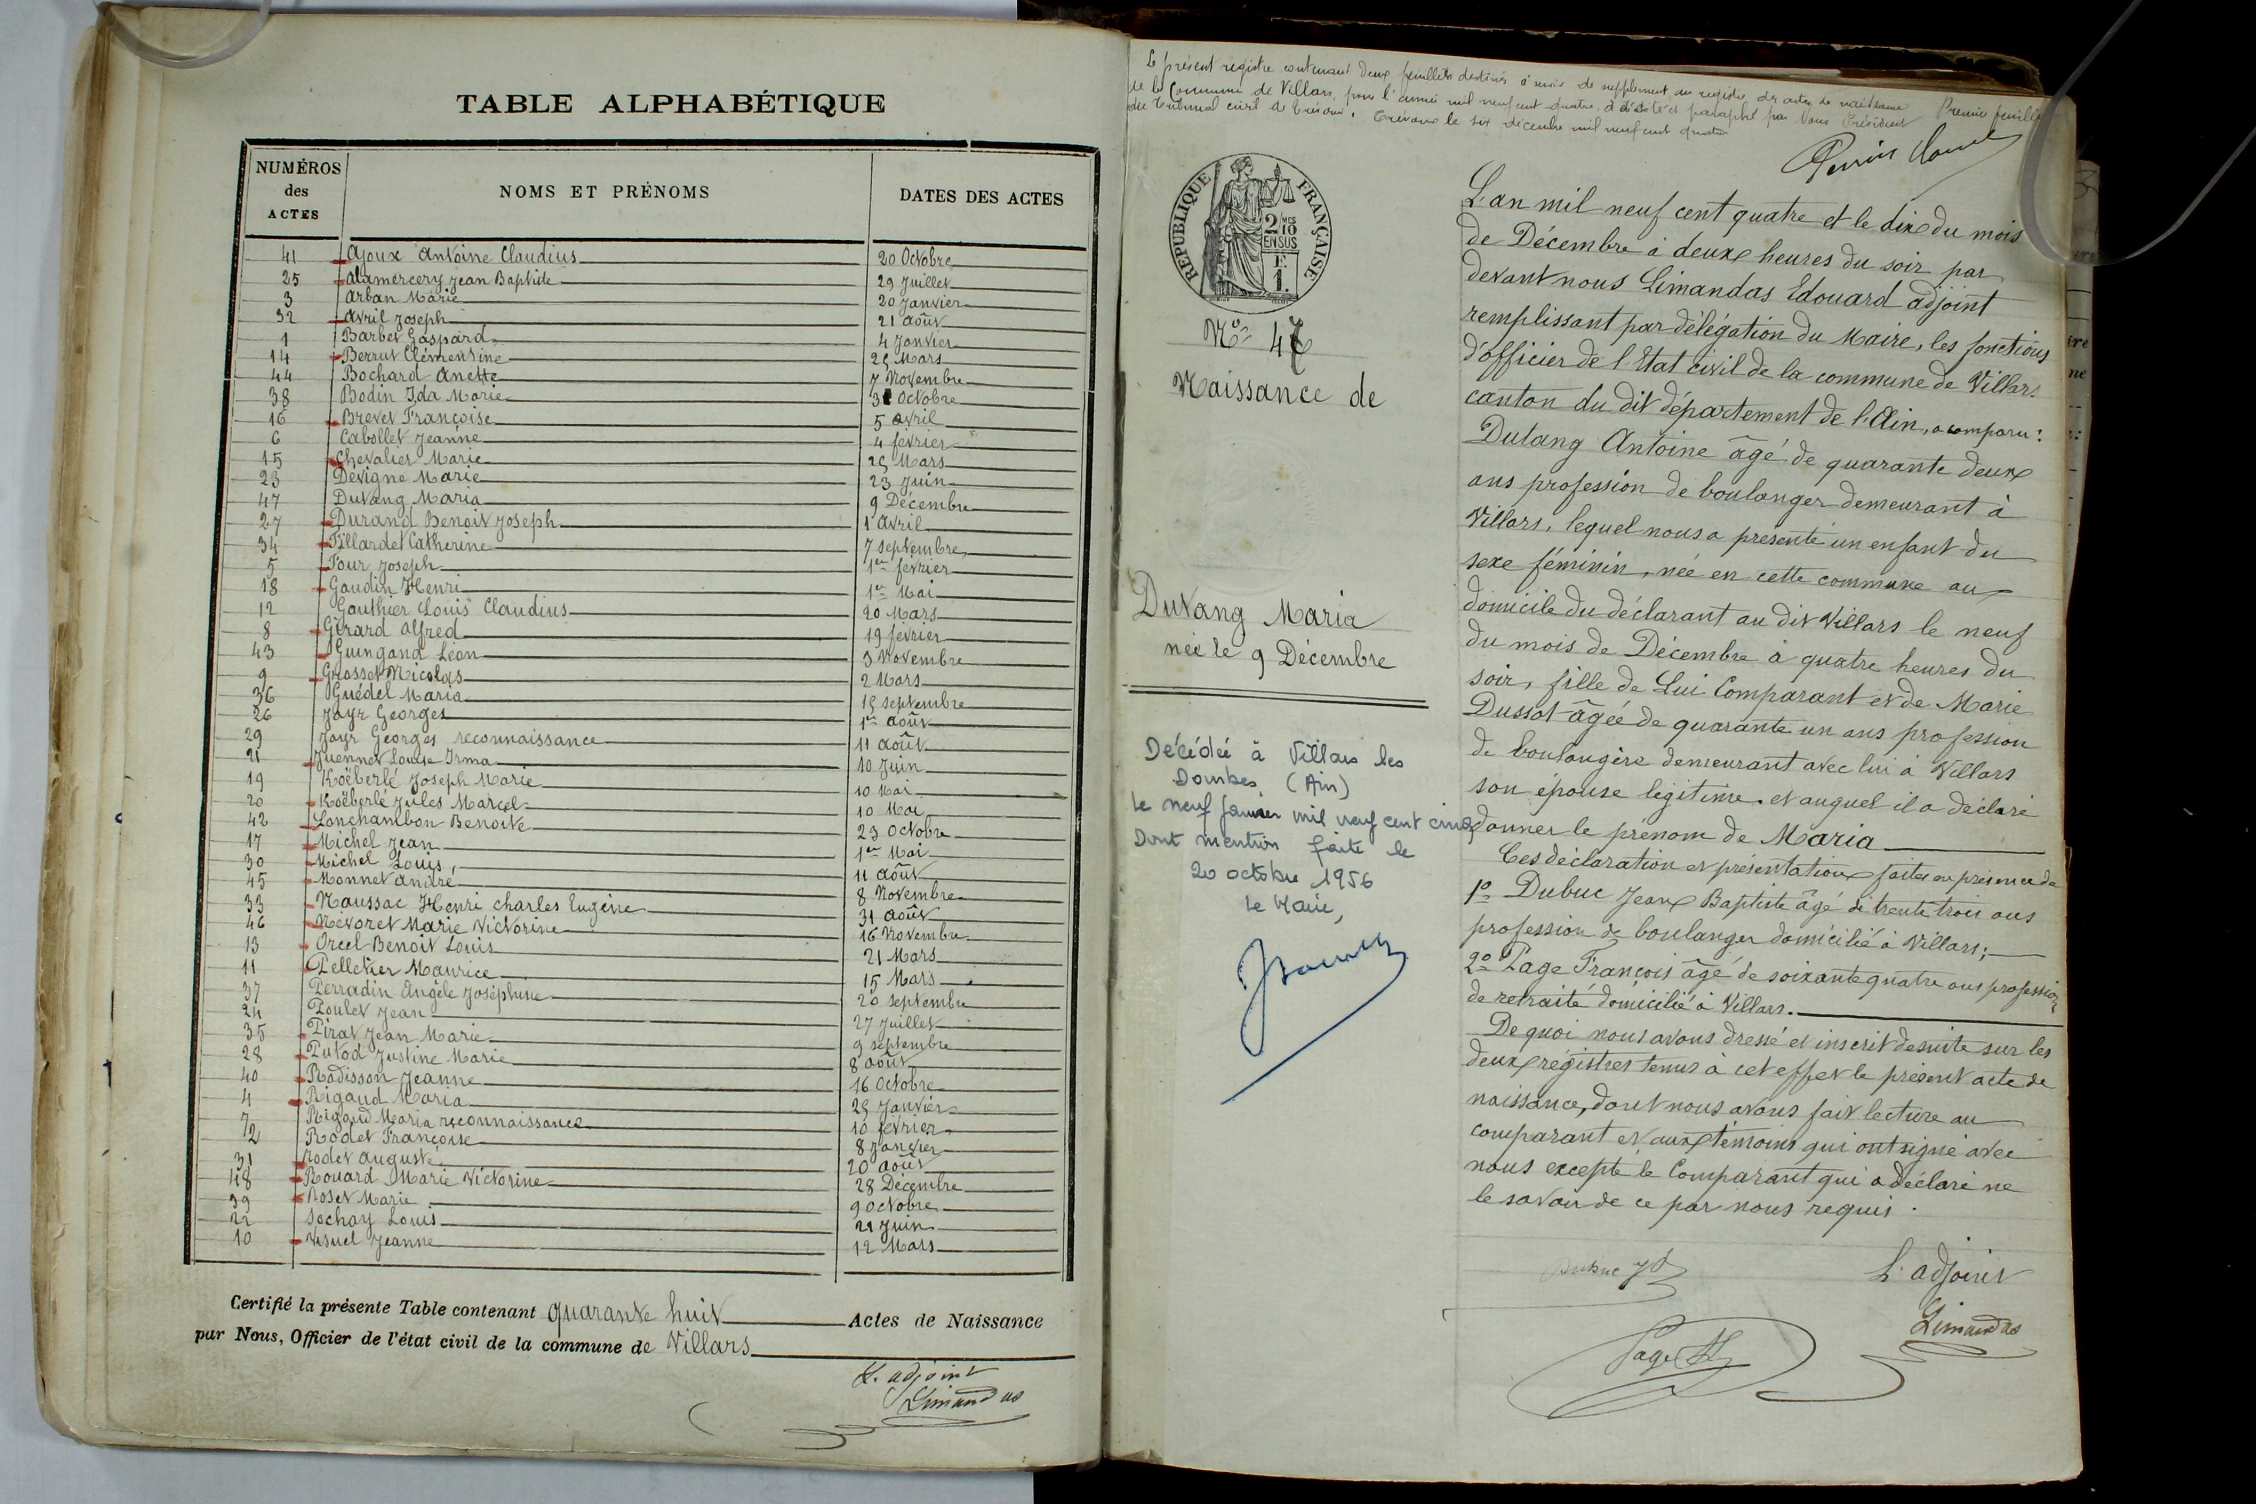 TABLE ALPHABÉTIQUE
NUMÉROS des ACTES NOMS ET PRÉNOMS DATES DES ACTES
41 Ajoux Antoine Claudius 20 Octobre
25 Alamercery Jean Baptiste 29 Juillet
3 Arban Marie 20 Janvier
32 Avril Joseph 21 Août
1 Barbet Gaspard 4 Janvier
14 Berrut Clémentine 25 Mars
44 Bochard Anette 7 Novembre
38 Bodin Ida Marie 3 Octobre
16 Brevet Françoise 5 Avril
6 Cabollet Jeanne 4 février
15 Chevalier Marie 25 Mars
23 Devigne Marie 23 Juin
47 Dutang Maria 9 Décembre
27 Durand Benoit Joseph 1 Avril
34 Fillardet Catherine 7 septembre
5 Four Joseph 1er février
18 Gaudin Henri 1er Mai
12 Gauthier Louis Claudius 20 Mars
8 Girard Alfred 19 février
43 Guingand Léon 3 Novembre
9 Grosset Nicolas 2 Mars
36 Guédel Maria 15 septembre
26 Jayr Georges 1er août
29 Jayr Georges reconnaissance 11 août
21 Juennet Louise Irma 10 Juin
19 Koëberlé Joseph Marie 10 Mai
20 Koëberlé Jules Marcel 10 Mai
42 Lonchambon Benoite 23 Octobre
17 Michel Jean 1er Mai
30 Michel Louis 11 août
45 Monnet André 8 Novembre
33 Naussac Henri Charles Eugène 31 août
46 Névoret Marie Victorine 16 Novembre
13 Orcel Benoit Louis 21 Mars
11 Pelletier Maurice 15 Mars
37 Perradin Angèle Joséphine 20 septembre
24 Poulet Jean 27 Juillet
35 Pirat Jean Marie 9 septembre
28 Putod Justine Marie 8 août
40 Radisson Jeanne 16 Octobre
4 Rigaud Maria 25 Janvier
7 Rigaud Maria reconnaissance 10 février
2 Rodet Françoise 8 Janvier
31 Rodet Auguste 20 août
48 Rouard Marie Victorine 28 Décembre
39 Roset Marie 9 octobre
22 Sochay Louis 21 Juin
10 Vesuel Jeanne 12 Mars
Certifié la présente Table contenant quarante huit Actes de Naissance
par Nous, Officier de l'état civil de la commune de Villars
L'adjoint
Limandas
Le présent registre contenant deux feuillets destinés à servir de supplément au registre des actes de naissance Premier feuillet
de la Commune de Villars, pour l'année mil neuf cent quatre, a été coté et paraphé par Nous Président
du Tribunal civil de Trévoux. Trévoux le six décembre mil neuf cent quatre
RÉPUBLIQUE FRANÇAISE
2/10 EN SUS
F 1.
No 47
Naissance de
Dutang Maria
née le 9 Décembre
Décédée à Villars les
Dombes (Ain)
le neuf janvier mil neuf cent cinq
Dont mention faite le
20 octobre 1956
Le Maire,
L'an mil neuf cent quatre et le dix du mois
de Décembre à deux heures du soir par
devant nous Limandas Edouard adjoint
remplissant par délégation du Maire, les fonctions
d'officier de l'Etat civil de la commune de Villars
canton du dit département de l'Ain, a comparu:
Dutang Antoine âgé de quarante deux
ans profession de boulanger demeurant à
Villars, lequel nous a présenté un enfant du
sexe féminin, née en cette commune au
domicile du déclarant au dit Villars le neuf
du mois de Décembre à quatre heures du
soir, fille de Lui Comparant et de Marie
Dussot âgée de quarante un ans profession
de boulangère demeurant avec lui à Villars
son épouse légitime. et auquel il a déclaré
donner le prénom de Maria
Ces déclaration et présentation faites en présence de
1o Dubuc Jean Baptiste âgé de trente trois ans
profession de boulanger domicilié à Villars;
2o Page François âgé de soixante quatre ans profession
de retraité domicilié à Villars.
De quoi nous avons dressé et inscrit desuite sur les
deux régistres tenus à cet effet le présent acte de
naissance, dont nous avons fait lecture au
comparant et aux témoins qui ont signé avec
nous excepté le Comparant qui a déclaré ne
le savoir de ce par nous requis.
Dubuc
L'adjoint
Limandas
Page